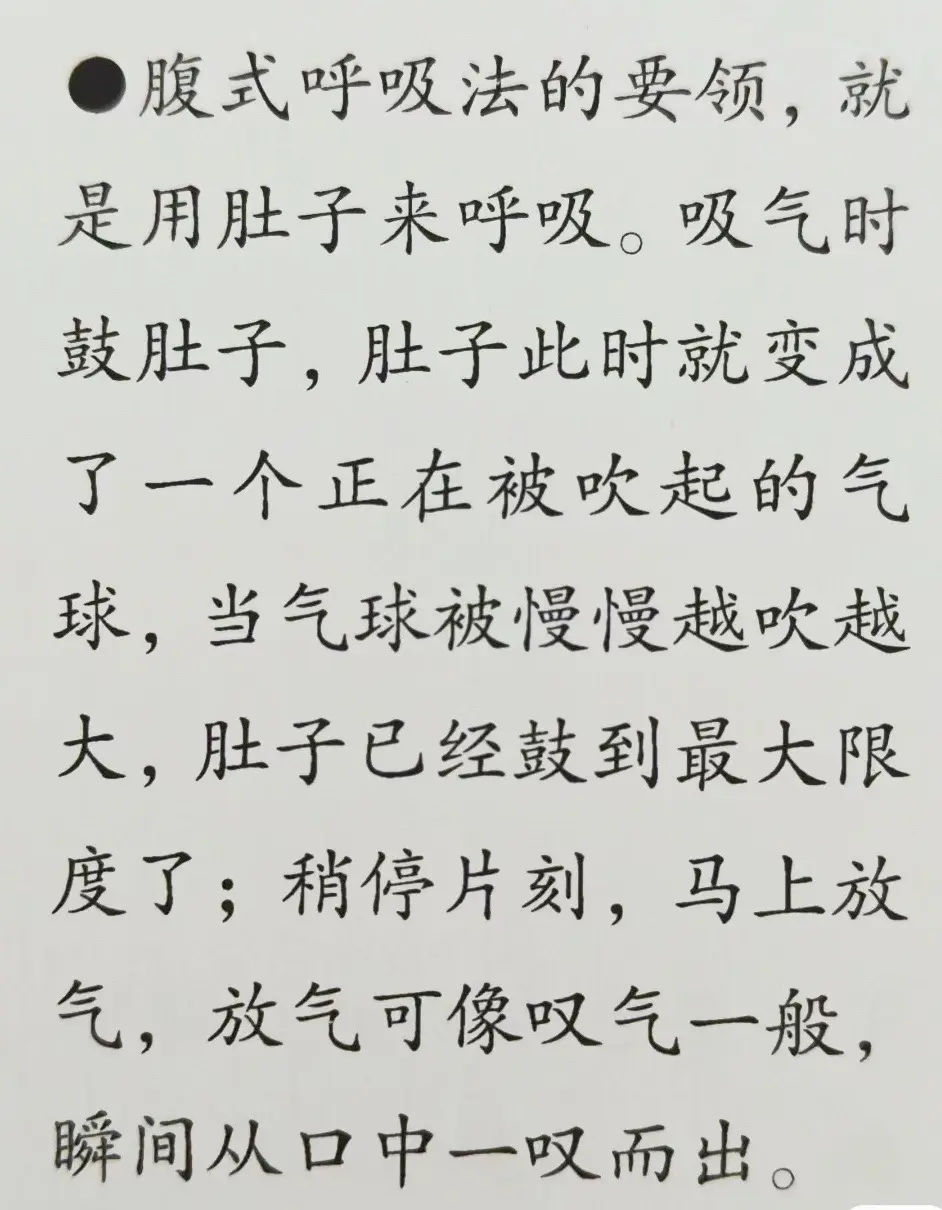 ●腹式呼吸法的要领，就
是用肚子来呼吸。吸气时
鼓肚子，肚子此时就变成
了一个正在被吹起的气
球，当气球被慢慢越吹越
大，肚子已经鼓到最大限
度了；稍停片刻，马上放
气，放气可像叹气一般，
瞬间从口中一叹而出。